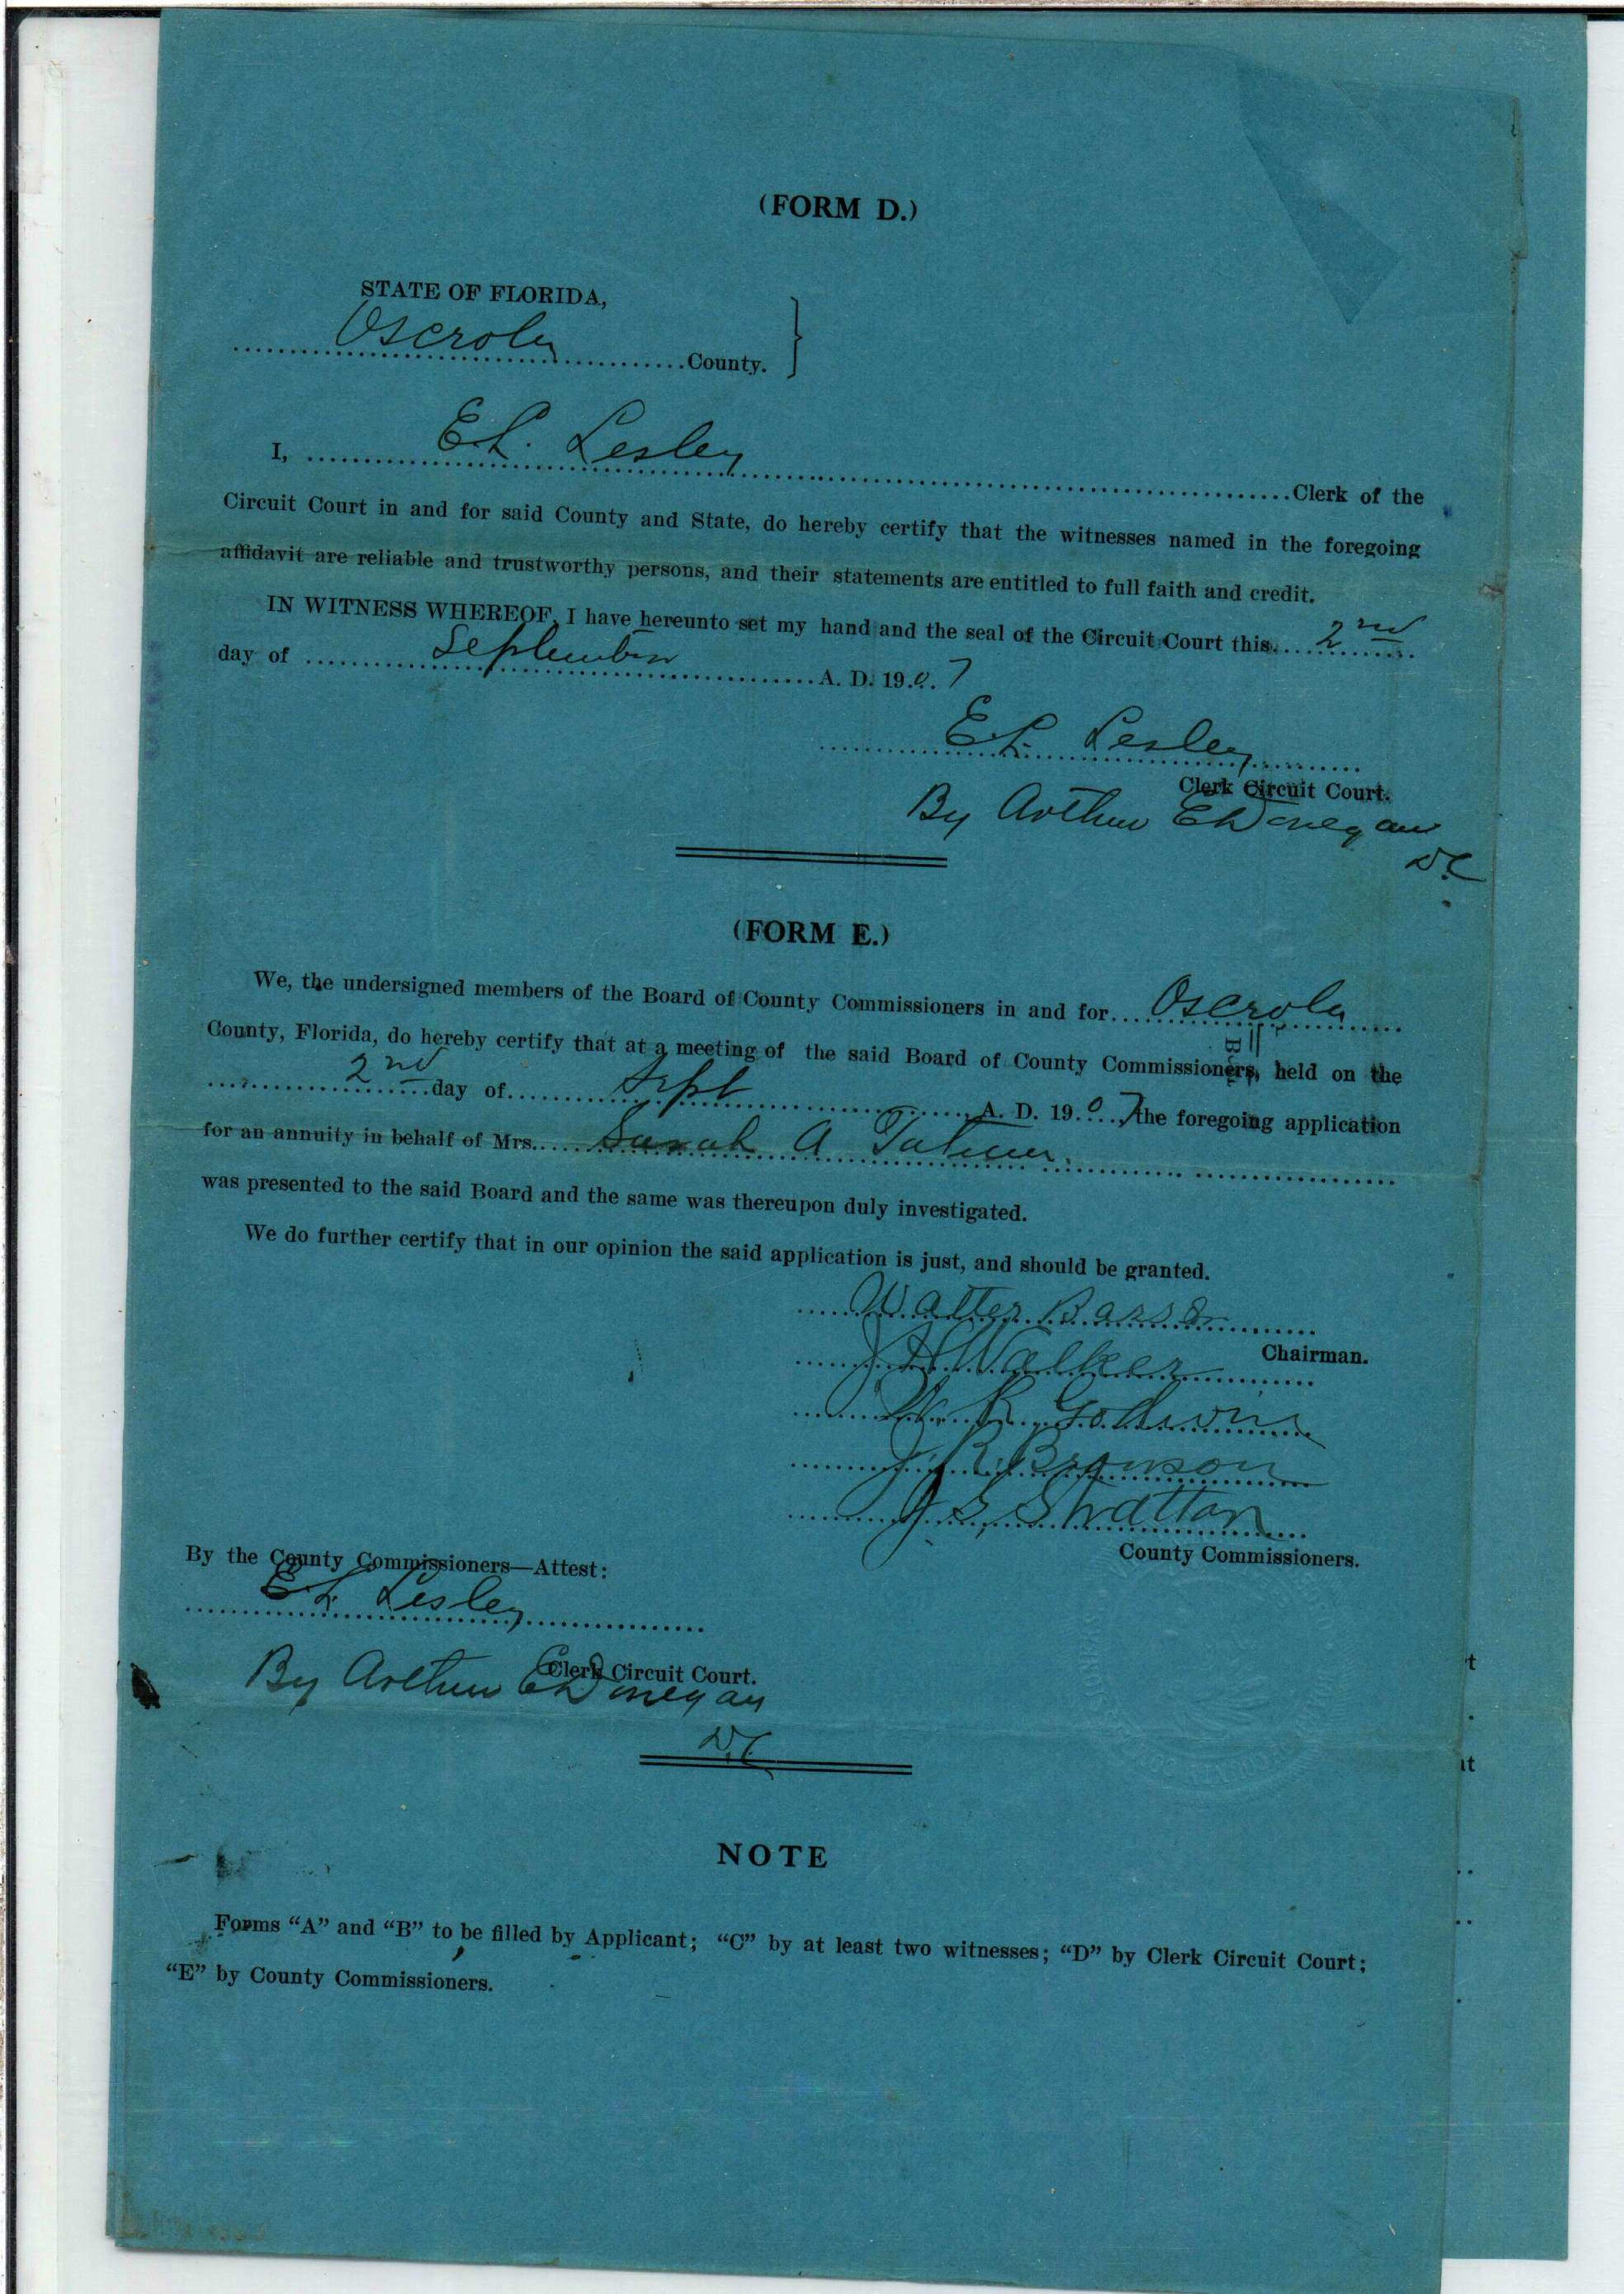 (FORM D.)
STATE OF FLORIDA,
Osceola County.
I, E L. Lesley Clerk of the
Circuit Court in and for said County and State, do hereby certify that the witnesses named in the foregoing
affidavit are reliable and trustworthy persons, and their statements are entitled to full faith and credit.
IN WITNESS WHEREOF, I have hereunto set my hand and the seal of the Circuit Court this 2nd
day of September A. D. 190.7
E L. Lesley
Clerk Circuit Court.
By Arthur E Donegan
D.C
(FORM E.)
We, the undersigned members of the Board of County Commissioners in and for Osceola
County, Florida, do hereby certify that at a meeting of the said Board of County Commissioners, held on the
2nd day of Sept A. D. 190.7 the foregoing application
for an annuity in behalf of Mrs. Sarah A
was presented to the said Board and the same was thereupon duly investigated.
We do further certify that in our opinion the said application is just, and should be granted.
Walter Bass
Chairman.
J H Walker
R. Godwin
J. R. Bronson
J S Stratton
County Commissioners.
By the County Commissioners—Attest:
E L. Lesley
Clerk Circuit Court.
By Arthur E Donegan
D.C
NOTE
Forms “A” and “B” to be filled by Applicant; “C” by at least two witnesses; “D” by Clerk Circuit Court;
“E” by County Commissioners.